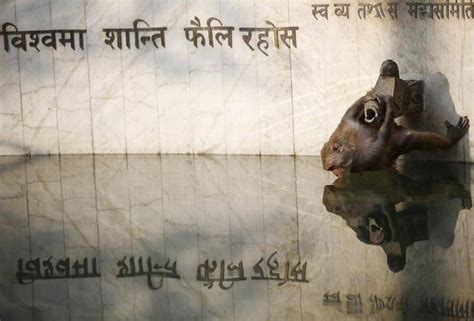 विश्वमा शान्ति फैलि रहोस
स्व व्य तथा महासमिति